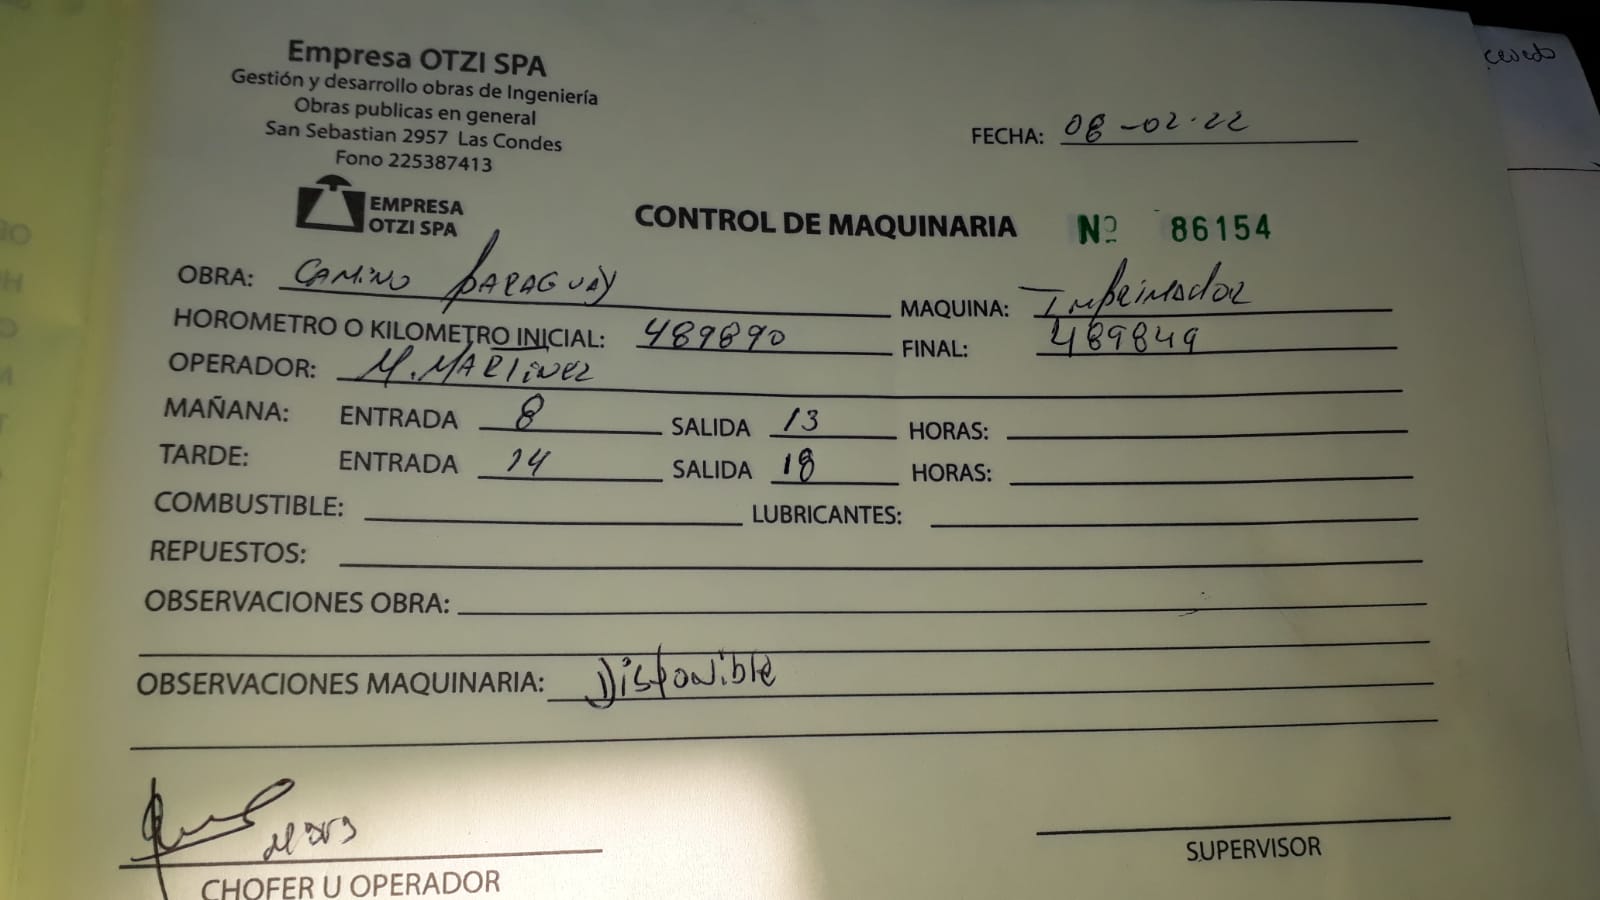 Empresa OTZI SPA
Gestión y desarrollo obras de Ingeniería
Obras publicas en general
San Sebastian 2957 Las Condes
Fono 225387413
FECHA: 08-02-22
EMPRESA
OTZI SPA
CONTROL DE MAQUINARIA Nº 86154
OBRA: CAMINO PARAGUAY MAQUINA: Imprimador
HOROMETRO O KILOMETRO INICIAL: 489890 FINAL: 489849
OPERADOR: M. MARTINEZ
MAÑANA: ENTRADA 8 SALIDA 13 HORAS:
TARDE: ENTRADA 14 SALIDA 18 HORAS:
COMBUSTIBLE: LUBRICANTES:
REPUESTOS:
OBSERVACIONES OBRA:
OBSERVACIONES MAQUINARIA: Disponible
CHOFER U OPERADOR
SUPERVISOR